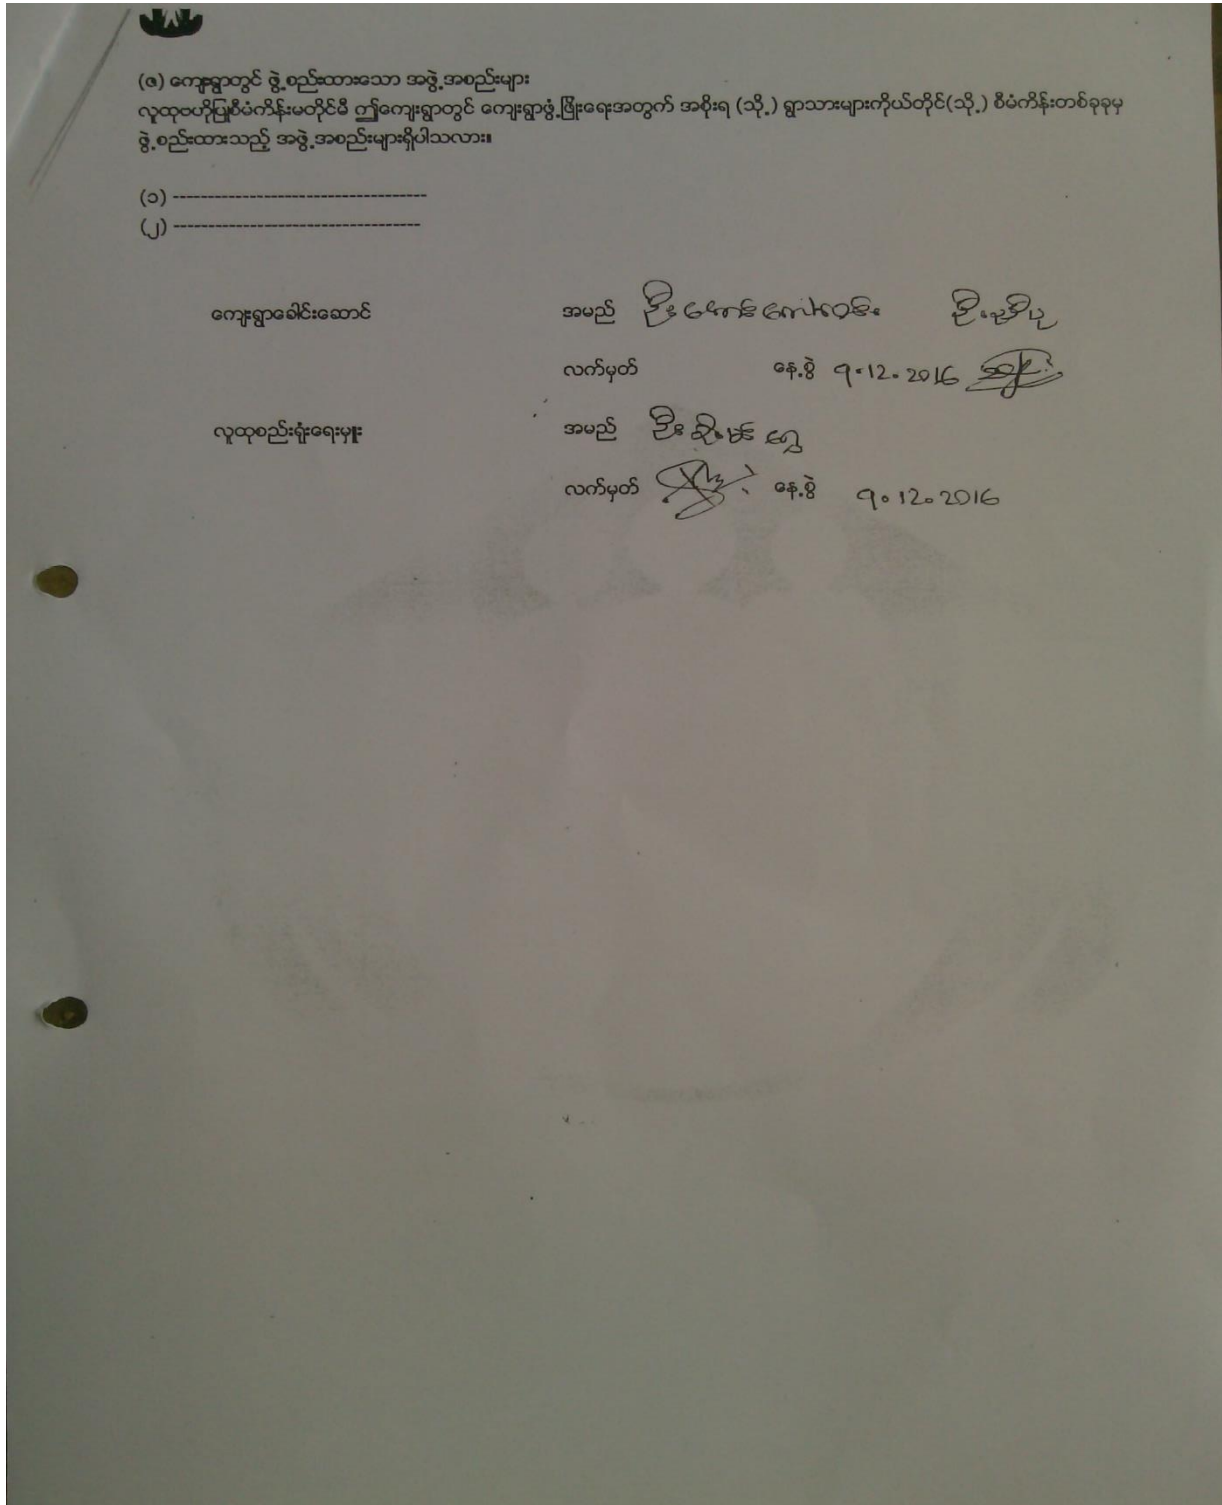 (ဇ) ကျေးရွာတွင် ဖွဲ့စည်းထားသော အဖွဲ့အစည်းများ
လူထုဗဟိုပြုစီမံကိန်းမတိုင်မီ ဤကျေးရွာတွင် ကျေးရွာဖွံ့ဖြိုးရေးအတွက် အစိုးရ (သို့) ရွာသားများကိုယ်တိုင်(သို့) စီမံကိန်းတစ်ခုခုမှ
ဖွဲ့စည်းထားသည့် အဖွဲ့အစည်းများရှိပါသလား။
(၁) ------------------------------------
(၂) -----------------------------------
ကျေးရွာခေါင်းဆောင် အမည် ဦး
လက်မှတ် နေ့စွဲ ၅.12.2016
လူထုစည်းရုံးရေးမှူး အမည် ဦး
လက်မှတ် နေ့စွဲ ၅.12.2016